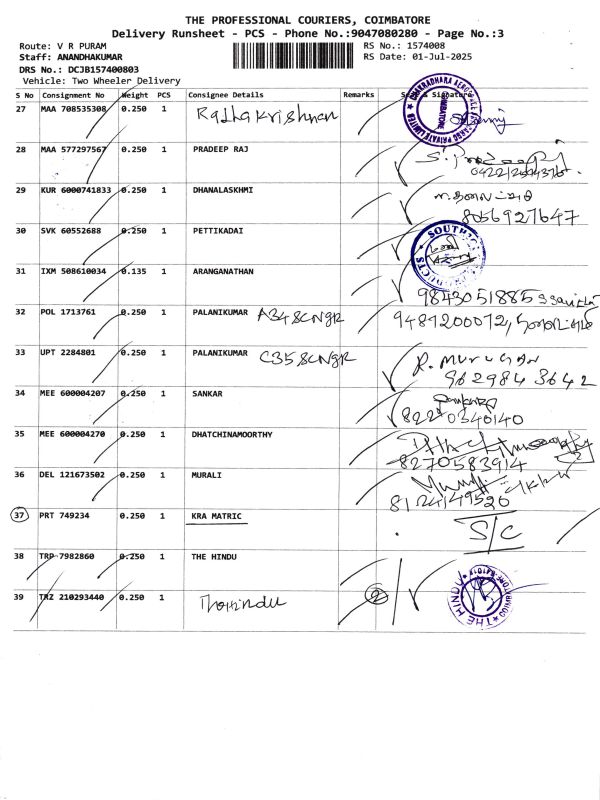 THE PROFESSIONAL COURIERS, COIMBATORE
Delivery Runsheet - PCS - Phone No.:9047080280 - Page No.:3
Route: V R PURAM RS No.: 1574008
Staff: ANANDHAKUMAR RS Date: 01-Jul-2025
DRS No.: DCJB157400803
Vehicle: Two Wheeler Delivery
S No Consignment No Weight PCS Consignee Details Remarks Signature
27 MAA 708535308 0.250 1 Radha Krishnan
28 MAA 577297567 0.250 1 PRADEEP RAJ
29 KUR 6000741833 0.250 1 DHANALASKHMI
8056927647
30 SVK 60552688 0.250 1 PETTIKADAI
31 IXM 508610034 0.135 1 ARANGANATHAN
9843051885
32 POL 1713761 0.250 1 PALANIKUMAR A34 SCNGR 9489200072,
33 UPT 2284801 0.250 1 PALANIKUMAR C35 SCNGR R. MURUGAN
9629843642
34 MEE 600004207 0.250 1 SANKAR
8220340140
35 MEE 600004270 0.250 1 DHATCHINAMOORTHY
8270583914
36 DEL 121673502 0.250 1 MURALI
8124149520
37 PRT 749234 0.250 1 KRA MATRIC S/C
38 TRP 7982860 0.250 1 THE HINDU
39 TRZ 210293440 0.250 1 The Hindu 2 THE HINDU